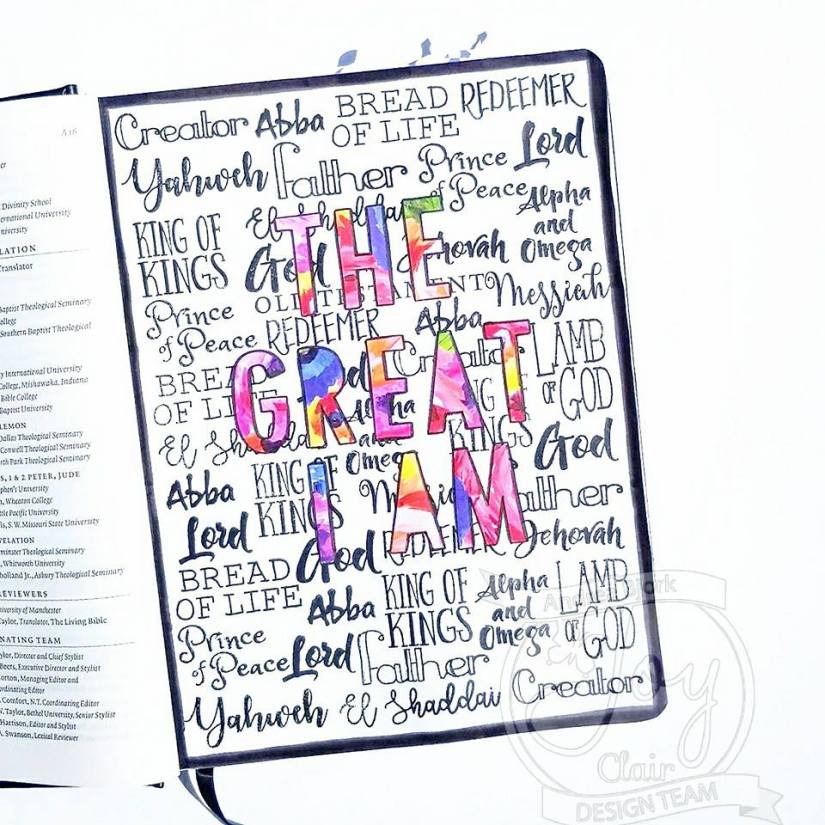 A16
Divinity School
ernational University
niversity
LATION
Translator
Baptist Theological Seminary
College
Southern Baptist Theological
ty International University
College, Mishawaka, Indiana
Bible College
Baptist University
LEMON
Dallas Theological Seminary
Conwell Theological Seminary
rth Park Theological Seminary
S, 1 & 2 PETER, JUDE
phen's University
n, Wheaton College
ttle Pacific University
lls, S.W. Missouri State University
VELATION
minster Theological Seminary
, Whitworth University
holland Jr., Asbury Theological Seminary
REVIEWERS
niversity of Manchester
Taylor, Translator, The Living Bible
NATING TEAM
ylor, Director and Chief Stylist
Beers, Executive Director and Stylist
orton, Managing Editor and
ordinating Editor
Comfort, N.T. Coordinating Editor
W. Taylor, Bethel University, Senior Stylist
Harrison, Editor and Stylist
A. Swanson, Lexical Reviewer
Creator Abba BREAD OF LIFE REDEEMER
Yahweh father Prince of Peace Lord
KING OF KINGS El Shaddai Alpha and Omega
God Jehovah
OLD TESTAMENT Messiah
Prince of Peace REDEEMER Abba
THE
GREAT
I AM
BREAD OF LIFE Creator LAMB OF GOD
El Shaddai Alpha and Omega KING KINGS God
Abba KING OF KINGS father
Lord God REDEEMER Jehovah
BREAD OF LIFE Abba KING OF KINGS Alpha and Omega LAMB OF GOD
Prince of Peace Lord father
Yahweh El Shaddai Creator
Joy
Clair
DESIGN TEAM